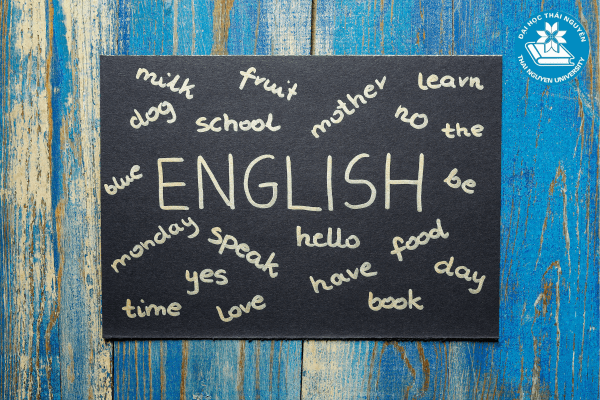 ĐẠI HỌC THÁI NGUYÊN
THAI NGUYEN UNIVERSITY
milk fruit mother learn
dog school no the
blue ENGLISH be
monday speak hello food
yes have day
time love book